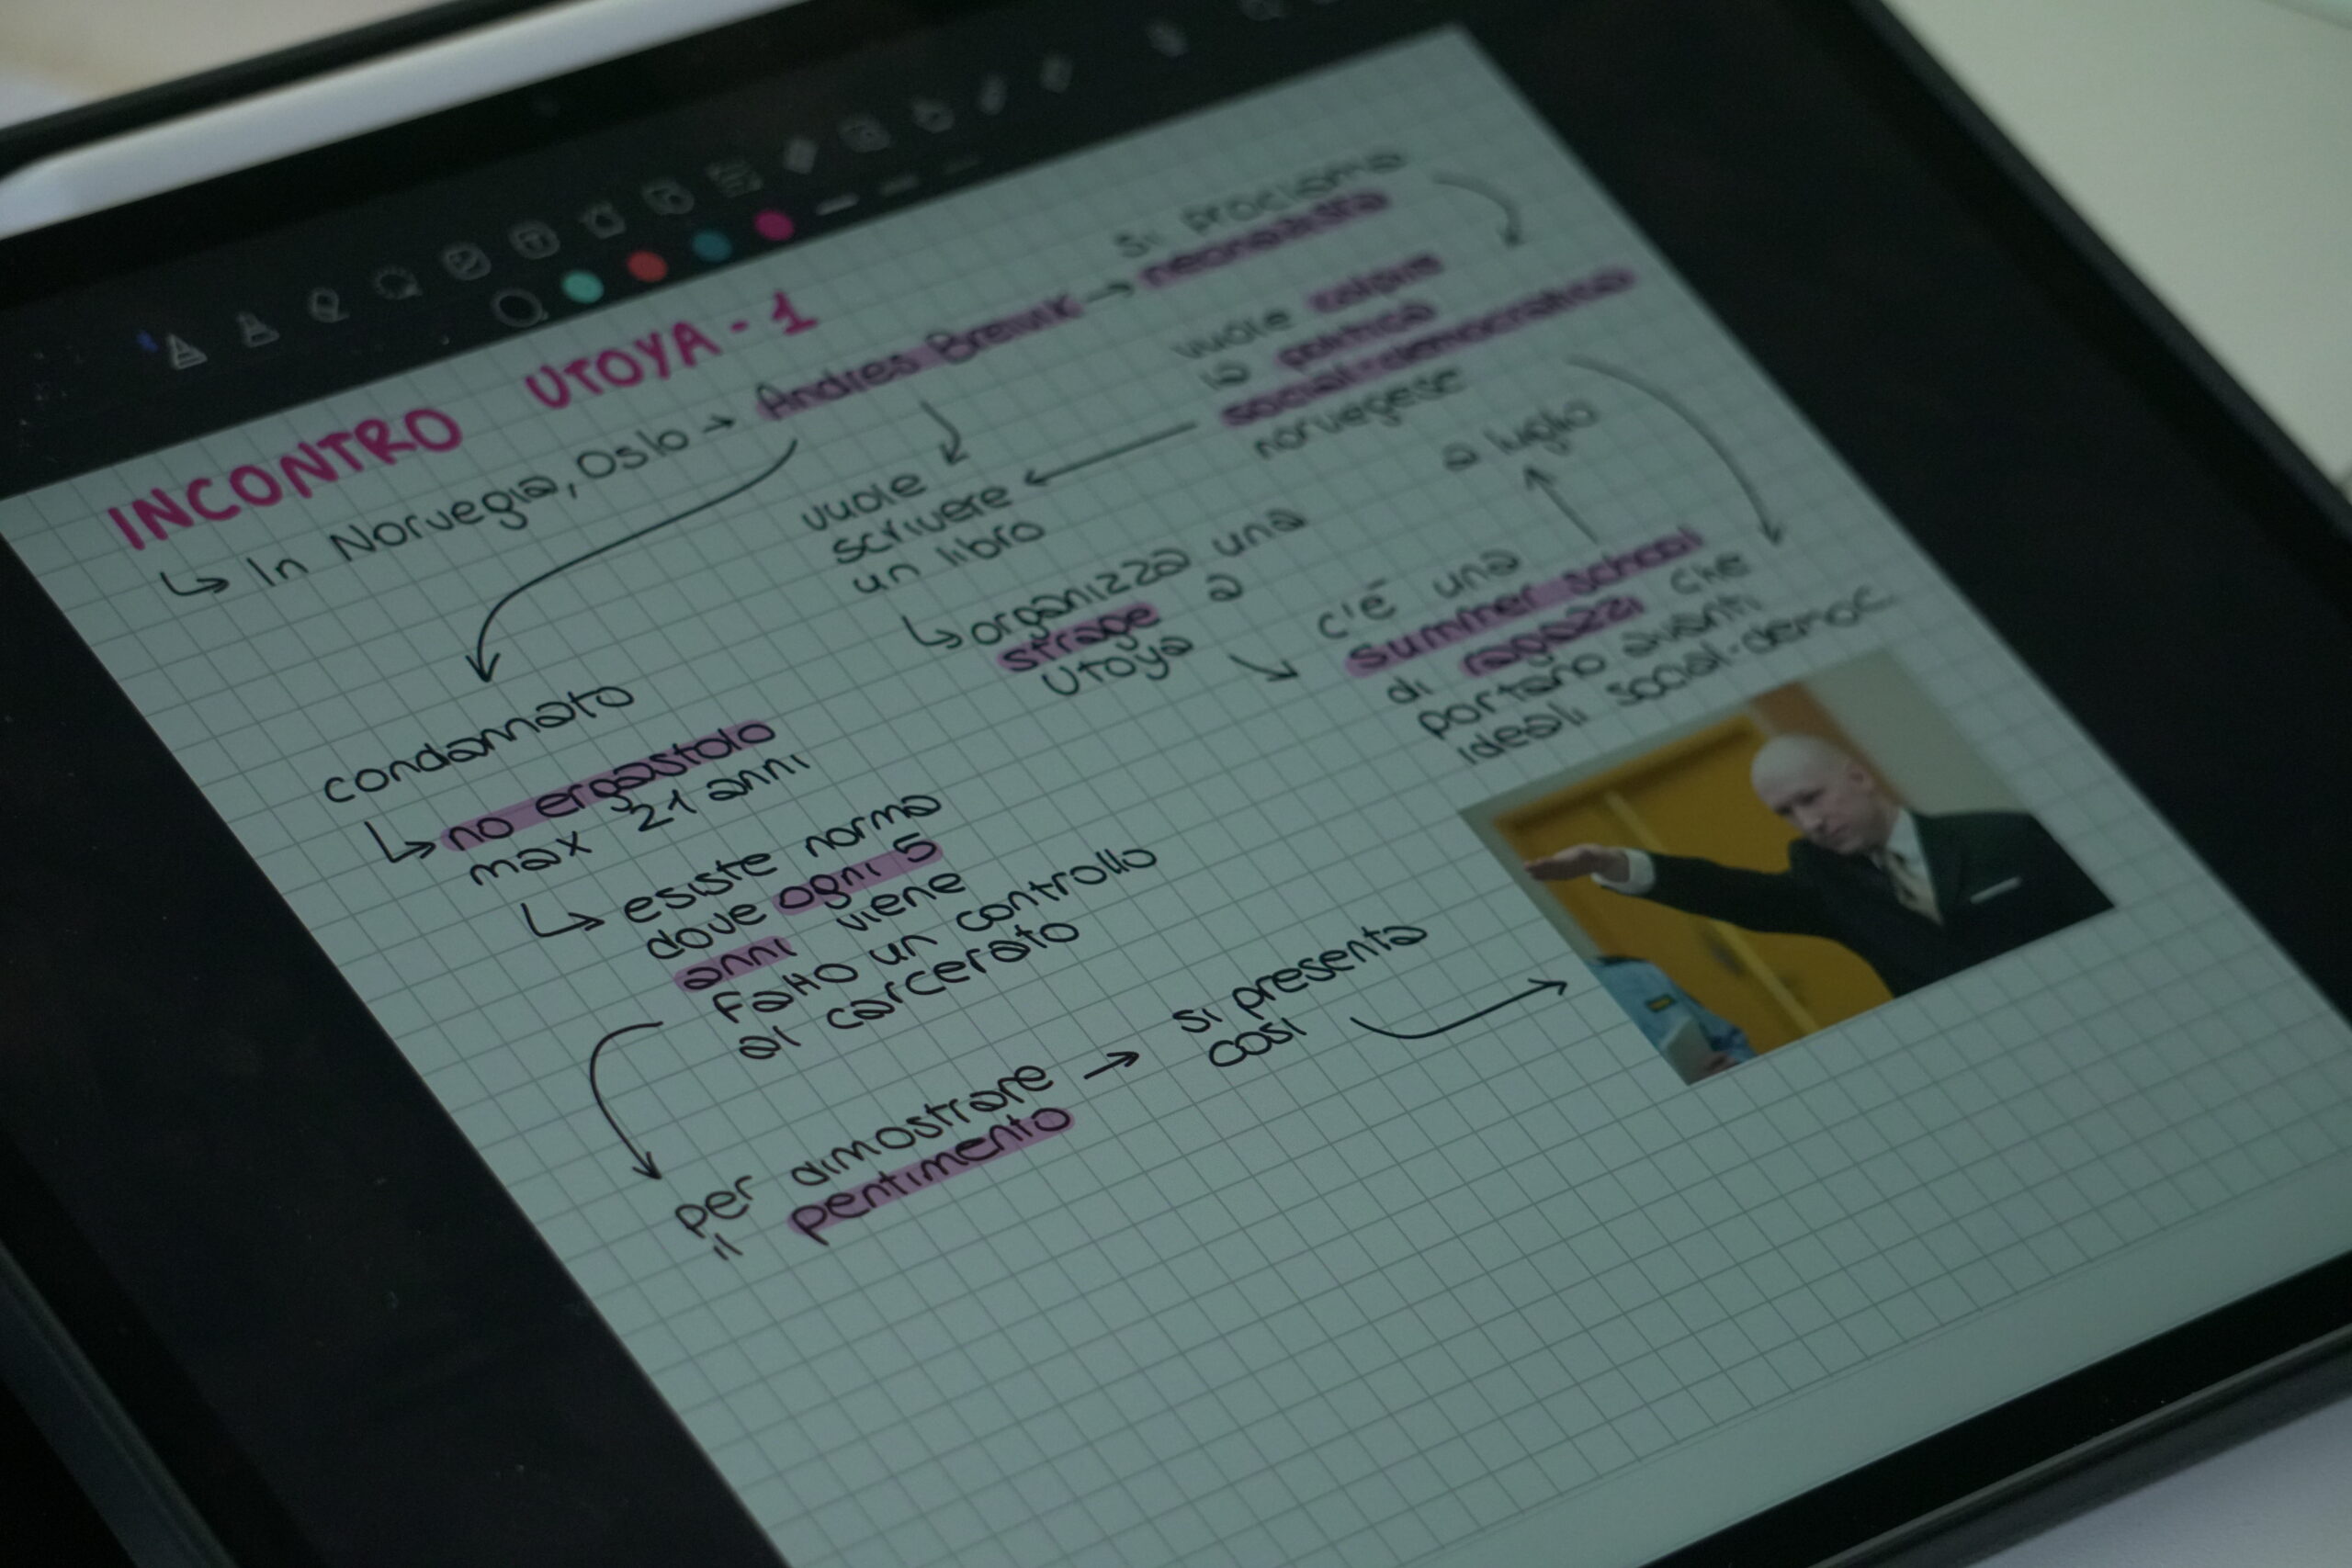 INCONTRO UTOYA - 1
↳ In Norvegia, Oslo → Andres Breivik →
si proclama
neonazista
vuole colpire
la politica
social-democratica
norvegese
vuole
scrivere
un libro
↳ organizza una
strage a
Utoya
c'è una
summer school
di ragazzi che
portano avanti
ideali social-democ.
a luglio
condannato
↳ no ergastolo
max 21 anni
↳ esiste norma
dove ogni 5
anni viene
fatto un controllo
al carcerato
per dimostrare →
il pentimento
si presenta
così